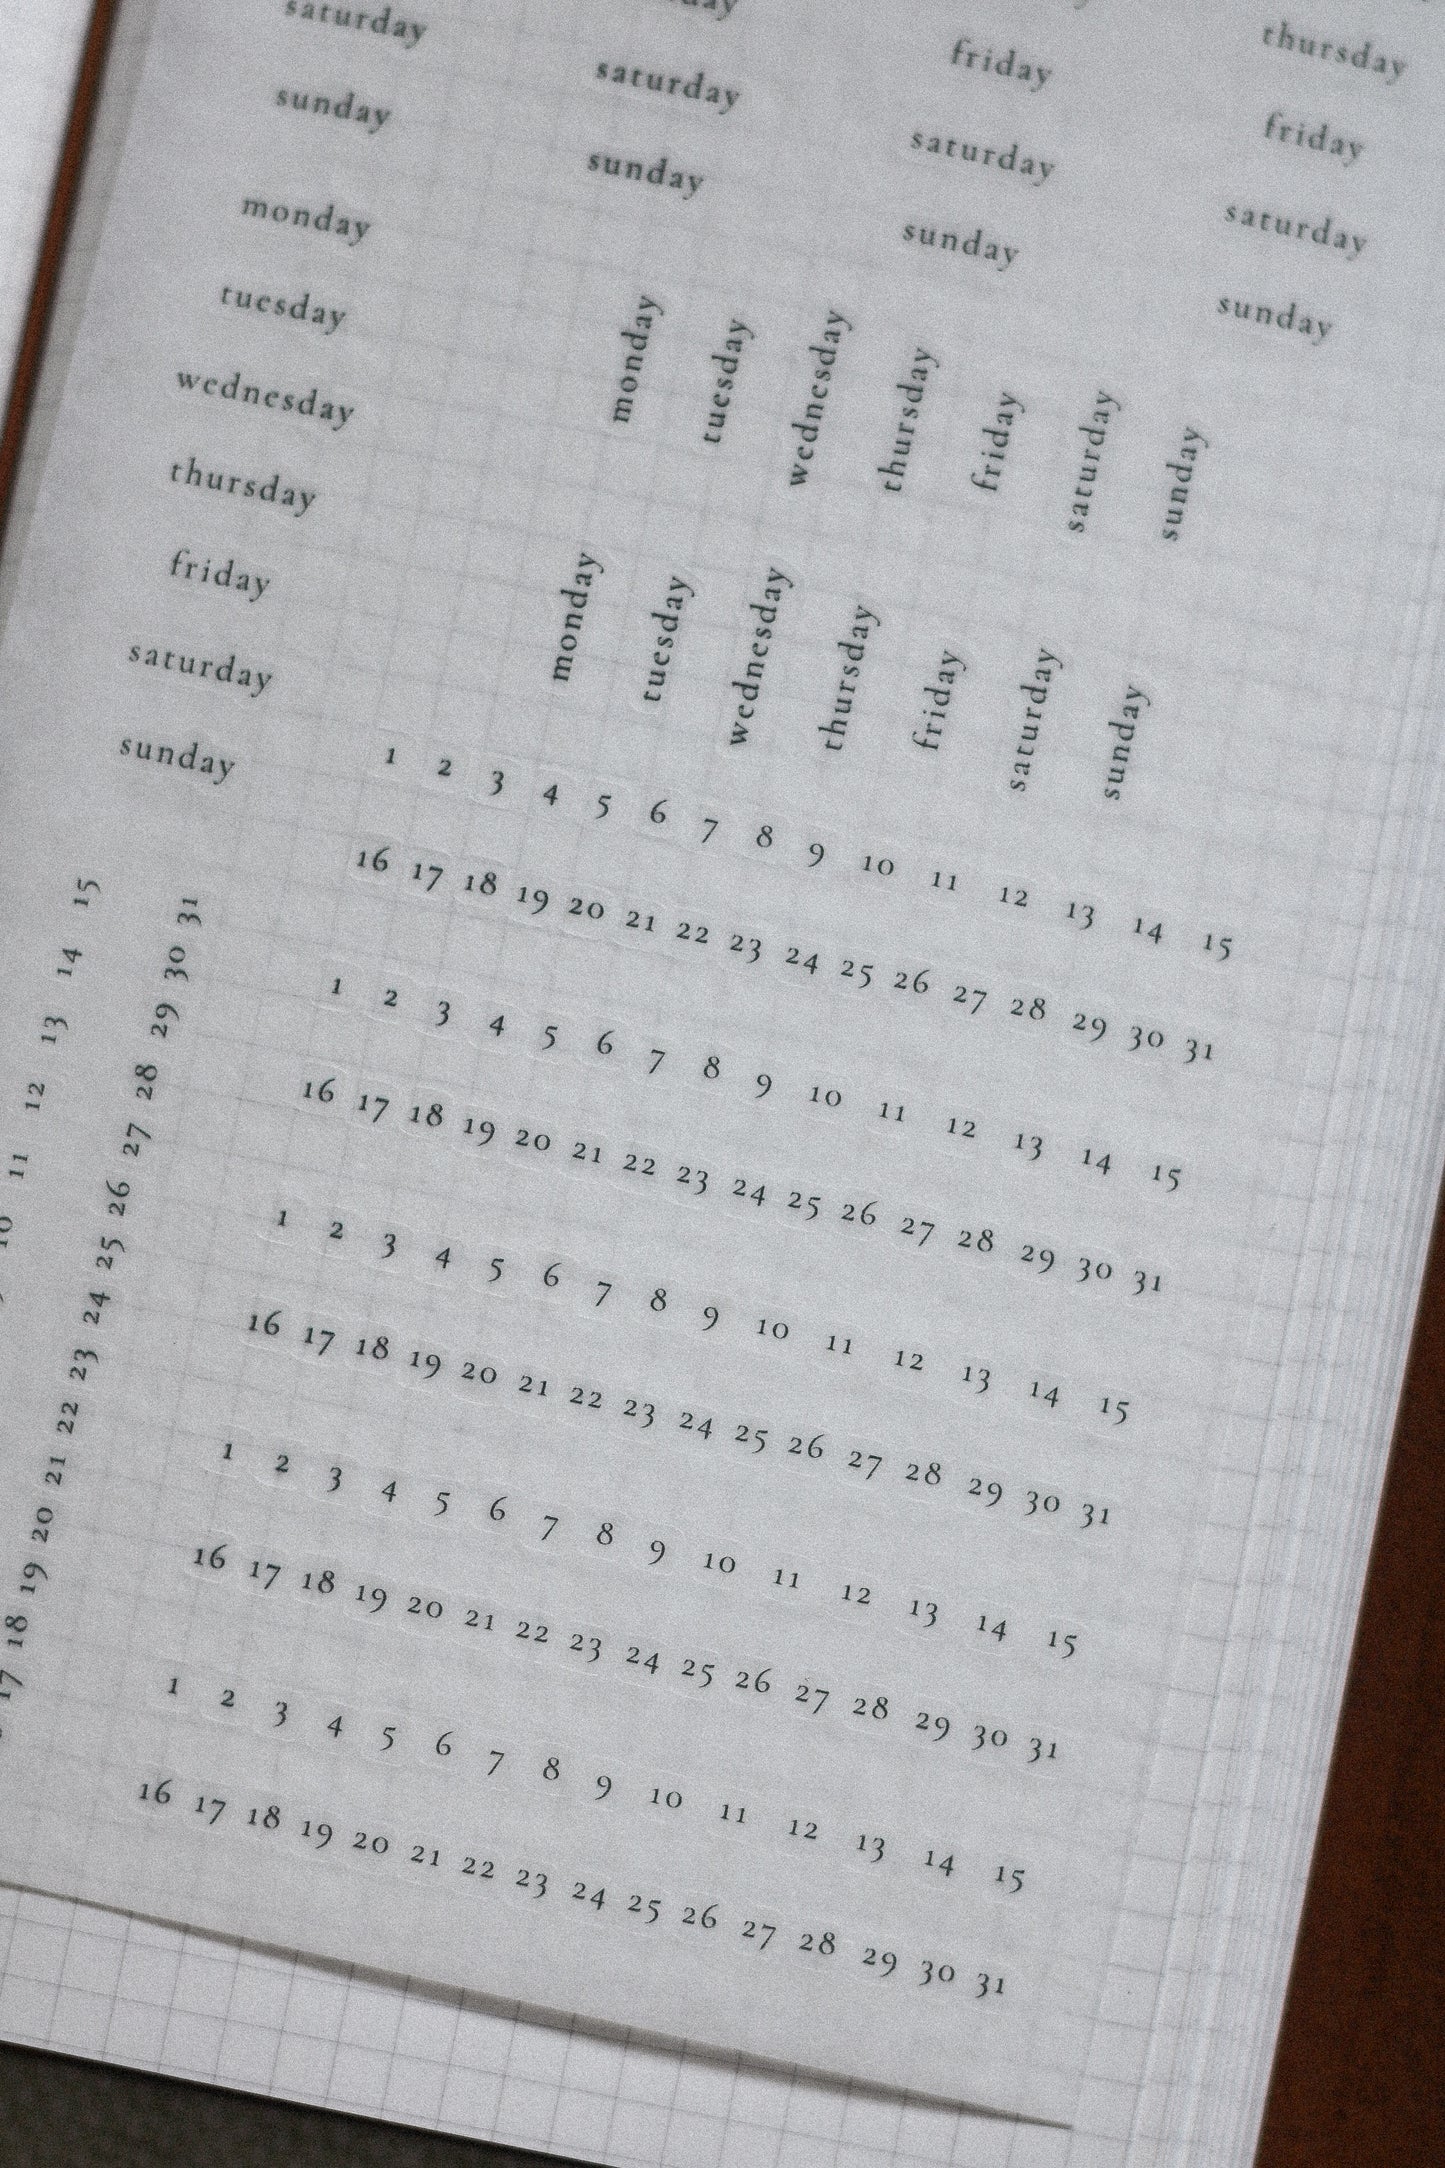 saturday
sunday
monday
tuesday
wednesday
thursday
friday
saturday
sunday
saturday
sunday
friday
saturday
sunday
thursday
friday
saturday
sunday
monday
tuesday
wednesday
thursday
friday
saturday
sunday
monday
tuesday
wednesday
thursday
friday
saturday
sunday
11 12 13 14 15
17 18 19 20 21 22 23 24 25 26 27 28 29 30 31
1 2 3 4 5 6 7 8 9 10 11 12 13 14 15
16 17 18 19 20 21 22 23 24 25 26 27 28 29 30 31
1 2 3 4 5 6 7 8 9 10 11 12 13 14 15
16 17 18 19 20 21 22 23 24 25 26 27 28 29 30 31
1 2 3 4 5 6 7 8 9 10 11 12 13 14 15
16 17 18 19 20 21 22 23 24 25 26 27 28 29 30 31
1 2 3 4 5 6 7 8 9 10 11 12 13 14 15
16 17 18 19 20 21 22 23 24 25 26 27 28 29 30 31
1 2 3 4 5 6 7 8 9 10 11 12 13 14 15
16 17 18 19 20 21 22 23 24 25 26 27 28 29 30 31